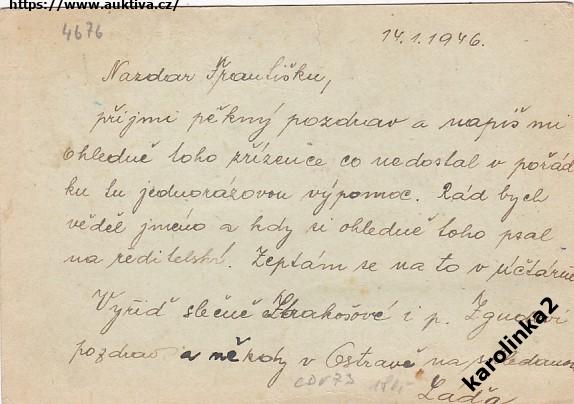 https://www.auktiva.cz/
4676
14.1.1946.
Nazdar Františku,
přijmi pěkný pozdrav a napiš mi
ohledně toho zřízence co nedostal v pořád
ku tu jednorázovou výpomoc. Rád bych
věděl jméno a kdy si ohledně toho psal
na ředitelství. Zeptám se na to v účtárně
Vyřiď slečně i p.
pozdrav a někdy v Ostravě na shledanou
CDV73
Laďa
karolinka2